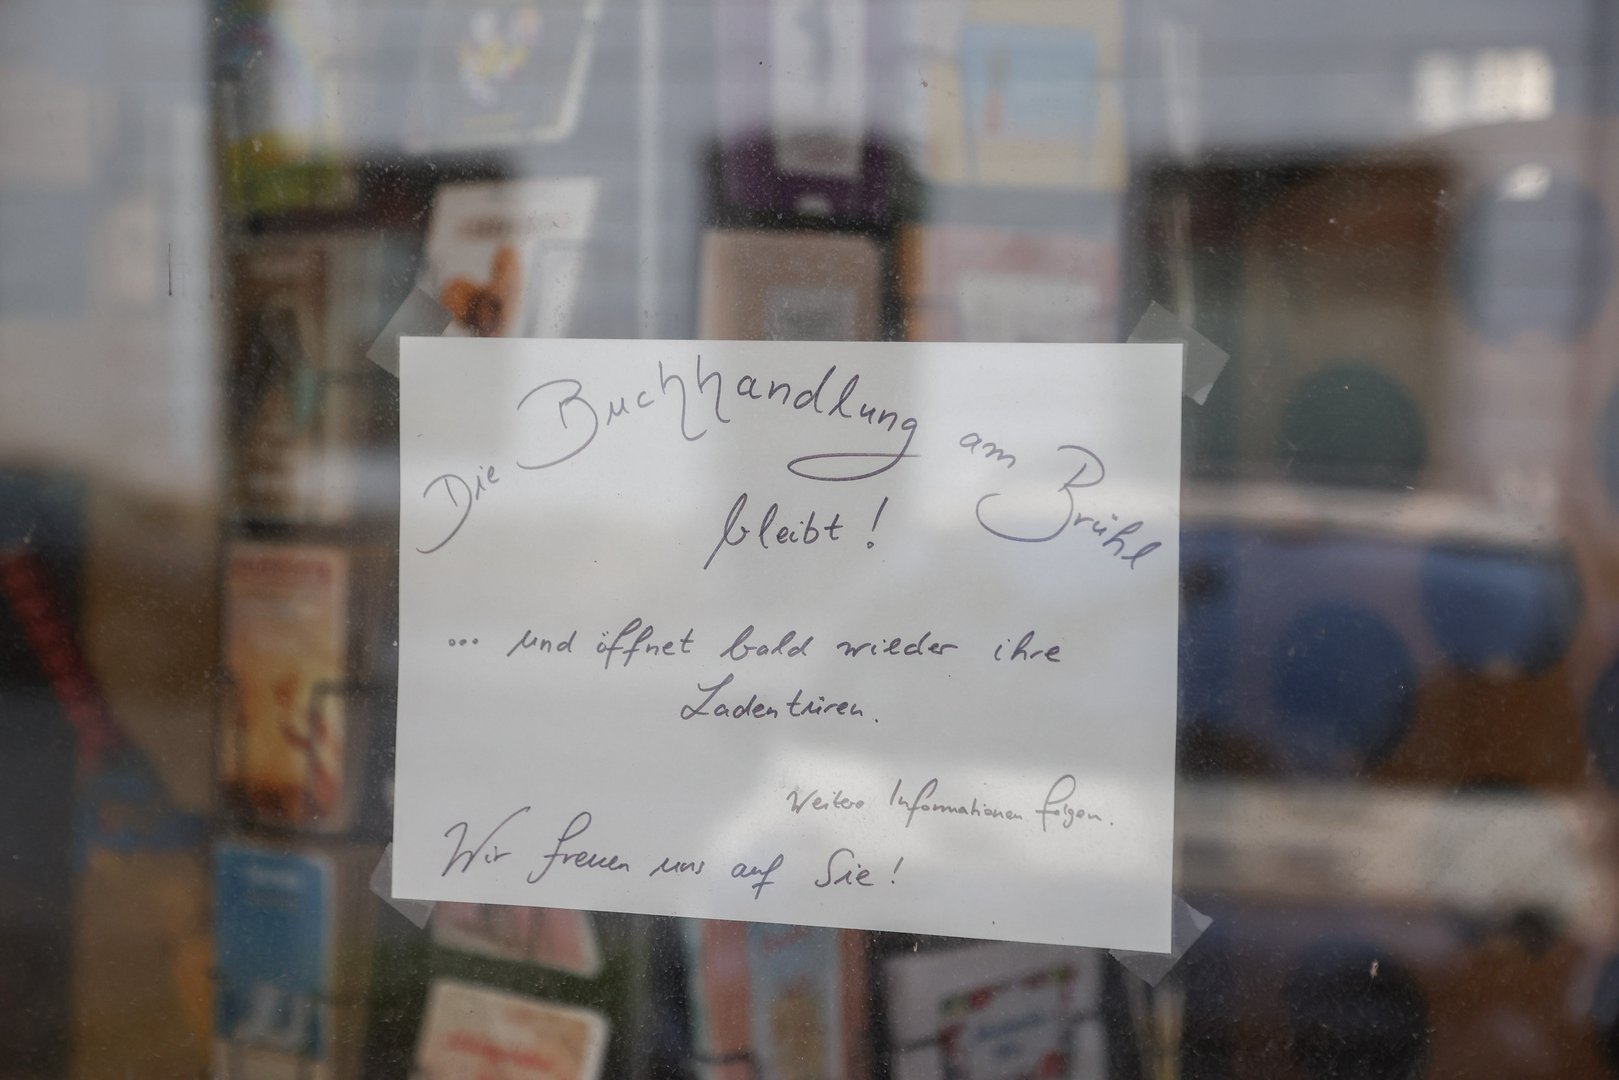 Die Buchhandlung am Brühl
bleibt!
... und öffnet bald wieder ihre
Ladentüren.
Weitere Informationen folgen.
Wir freuen uns auf Sie!